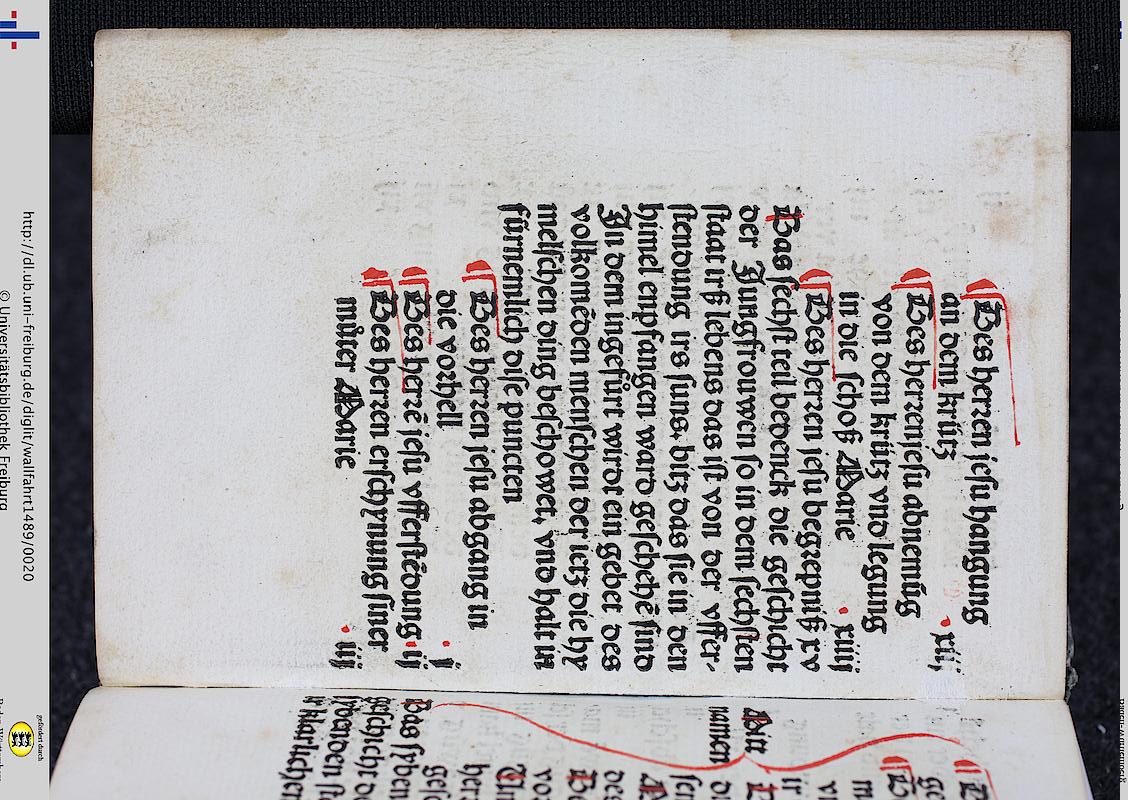 ¶ Des herren jesu hangung
an dem krütz · xiij
¶ Des herren jesu abnemūg
von dem krütz vnd legung
in die schoß Marie · xiiij
¶ Des herren jesu begrepniß xv
Das sechst teil bedenck die geschicht
der Jungfrouwen so in dem sechsten
staat irß lebens das ist von der vffer-
stendung irs suns, bitz das sie in den
himel enpfangen ward geschehē sind
In dem ingefürt wirdt ein gebet des
volkomēden menschen der ietz die hy
melschen ding beschowet, vnd halt in
fürnemlich dise puncten
¶ Des herren jesu abgang in
die vorhell · j
¶ Des herrē jesu vfferstēdung · ij
¶ Des herren erschynung siner
můter Marie · iij
Bitt
namen
Das syben
geschicht
sybenden
erklarlichen
http://dl.ub.uni-freiburg.de/diglit/wallfahrt1489/0020
© Universitätsbibliothek Freiburg
gefördert durch